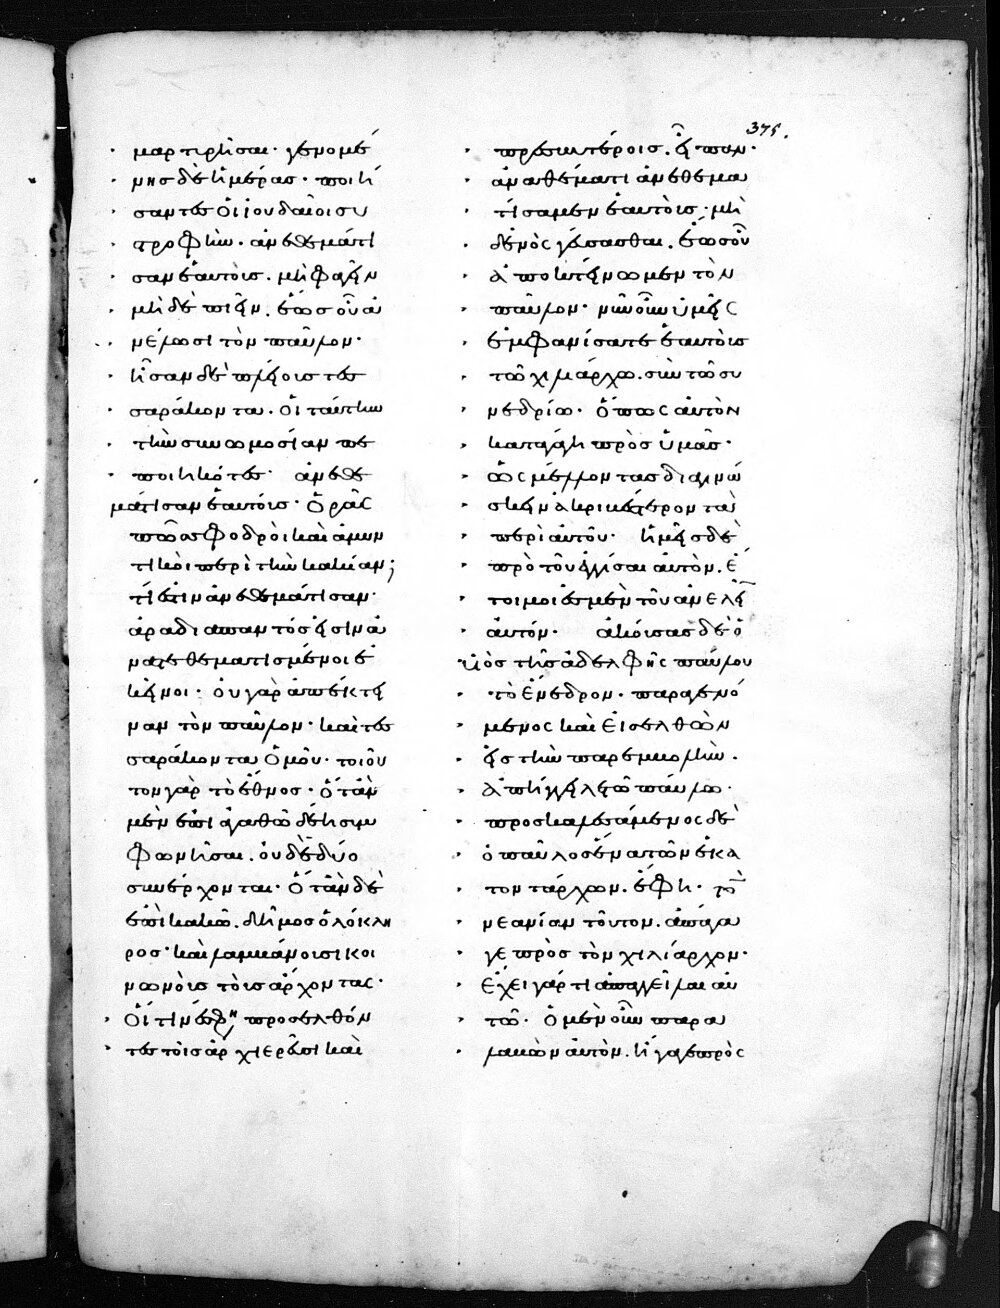 375.
μαρτυρῆσαι· γενομέ
νης δὲ ἡμέρας· ποιή
σαντες οἱ ἰουδαῖοι συ
στροφὴν· ἀνεθεμάτι
σαν ἑαυτοὺς. μὴ φαγεῖν
μὴ δὲ πιεῖν. ἕως οὗ ἀ
νέλωσι τὸν παῦλον·
ἦσαν δὲ πλείους τεσ
σαράκοντα. οἱ ταύτην
τὴν συνωμοσίαν πε
ποιηκότες· ἀνεθε
μάτισαν ἑαυτούς· ὁρᾶς
πῶς σφοδροὶ καὶ ἀμυν
τικοὶ περὶ τὴν κακίαν;
τί ἐστιν ἀνεθεμάτισαν·
ἄρα διαπαντός εἰσιν ἀ
νατεθεματισμένοι ἐ
κεῖνοι· οὐ γὰρ ἀπέκτει
ναν τὸν παῦλον· καὶ τεσ
σαράκοντα ὁμοῦ· τοιοῦ
τον γὰρ τὸ ἔθνος· ὅταν
μὲν ἐπὶ ἀγαθῶ δέη συμ
φωνῆσαι. οὐδὲ δύο
συνέρχονται· ὅταν δὲ
ἐπὶ κακῶ. δῆμος ὁλόκλη
ρος· καὶ λαμβάνουσι κοι
νωνοὺς τοὺς ἄρχοντας·
οἵτινες προσελθόν
τες τοῖς ἀρχιερεῦσι καὶ
πρεσβυτέροις. εἶπον·
ἀναθέματι ἀνεθεμα
τίσαμεν ἑαυτοὺς· μη
δενὸς γεύσασθαι. ἕως οὗ
ἀποκτείνωμεν τὸν
παῦλον· νῦν οὖν ὑμεῖς
ἐμφανίσατε ἑαυτοὺς
τῶ χιλιάρχω. σὺν τῶ συ
νεδρίω· ὅπως αὐτὸν
καταγάγη πρὸς ὑμᾶς·
ὡς μέλλοντας διαγνώ
σκειν ἀκριβέστερον τὰ
περὶ αὐτοῦ· ἡμεῖς δὲ
πρὸ τοῦ ἐγγίσαι αὐτὸν. ἕ
τοιμοι ἐσμὲν τοῦ ἀνελεῖν
αὐτόν· ἀκούσας δὲ ὁ
υἱὸς τῆς ἀδελφῆς παύλου
τὸ ἔνεδρον· παραγενό
μενος καὶ εἰσελθὼν
εἰς τὴν παρεμβολὴν.
ἀπήγγειλε τῶ παύλω·
προσκαλεσάμενος δὲ
ὁ παῦλος ἕνα τῶν ἑκα
τοντάρχων. ἔφη· τὸν
νεανίαν τοῦτον. ἀπάγα
γε πρὸς τὸν χιλίαρχον·
ἔχει γάρ τι ἀπαγγεῖλαι αὐ
τῶ· ὁ μὲν οὖν παρα
λαβὼν αὐτὸν. ἤγαγε πρὸς